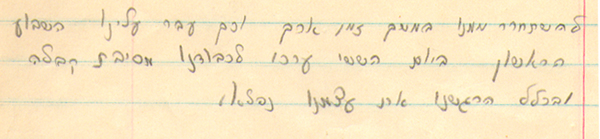 להשתחרר ממנו במשך זמן ארוך וכך עבר עלינו השבוע
הראשון ביום הששי ערכו לכבודנו מסיבת קבלה
ובכלל הרגשנו את עצמנו נפלא.